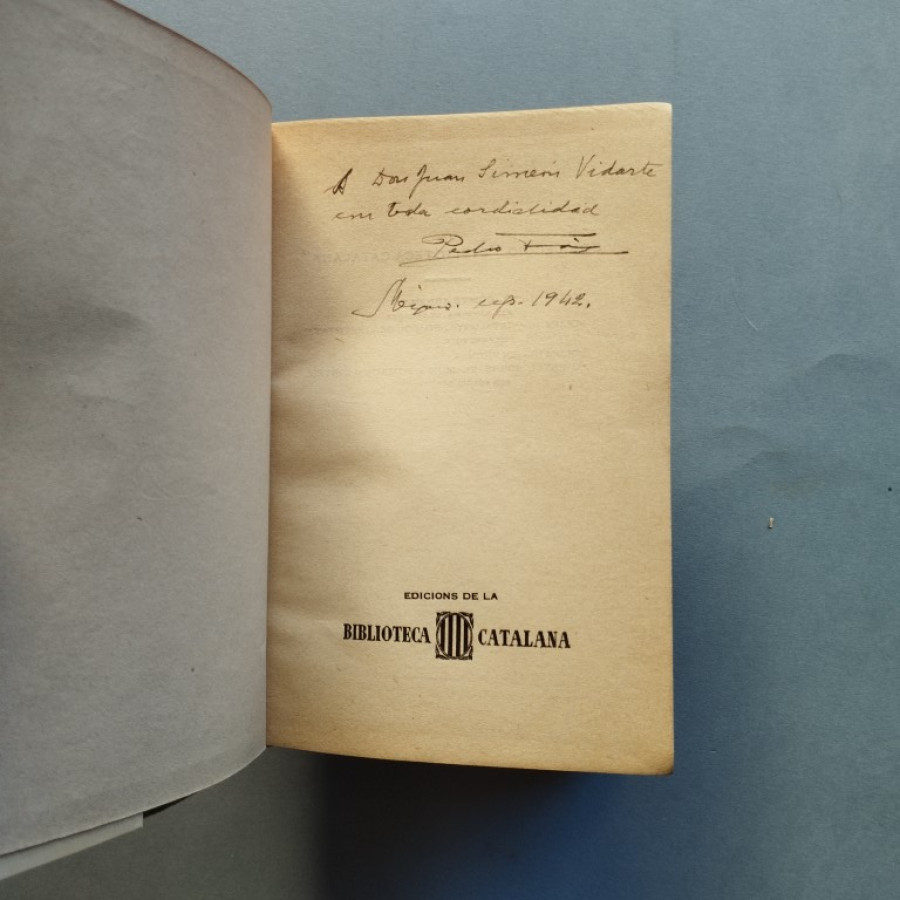 A Don Juan Simeón Vidarte
con toda cordialidad
Pedro
1942.
EDICIONS DE LA
BIBLIOTECA CATALANA